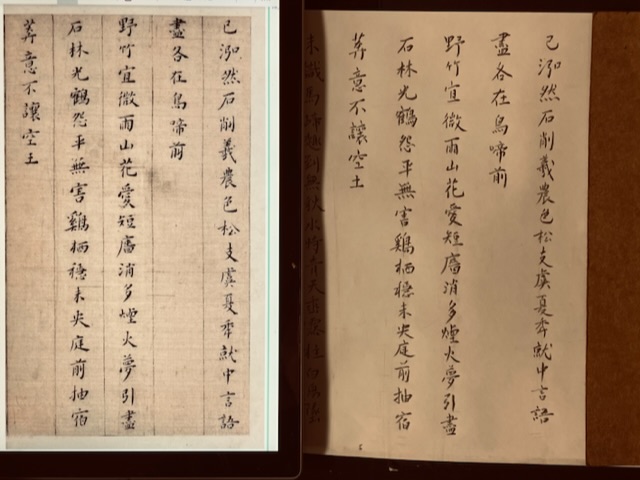 己泓然石削羲農色松支虞夏秊就中言語
盡各在鳥啼前
野竹宜微雨山花愛短廧消多煙火夢引盡
石林光鶴怨平無害鷄栖穩未央庭前抽宿
莽意不讓空王
己泓然石削羲農色松支虞夏秊就中言語
盡各在鳥啼前
野竹宜微雨山花愛短廧消多煙火夢引盡
石林光鶴怨平無害鷄栖穩未央庭前抽宿
莽意不讓空土